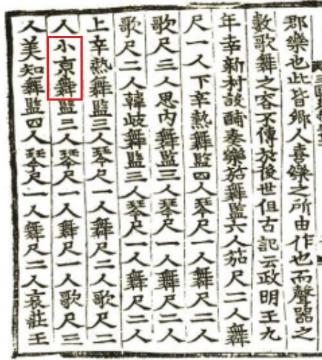 郡樂也此皆鄕人喜樂之所由作也而聲器之
數歌舞之容不傳於後世但古記云政明王九
年幸新村設酺奏樂笳舞監六人笳尺二人舞
尺一人下辛熱舞監四人琴尺一人舞尺二人
歌尺三人思内舞監三人琴尺一人舞尺二人
歌尺二人韓岐舞監三人琴尺一人舞尺二人
上辛熱舞監三人琴尺一人舞尺二人歌尺二
人小京舞監三人琴尺一人舞尺一人歌尺三
人美知舞監四人琴尺一人舞尺二人哀莊王